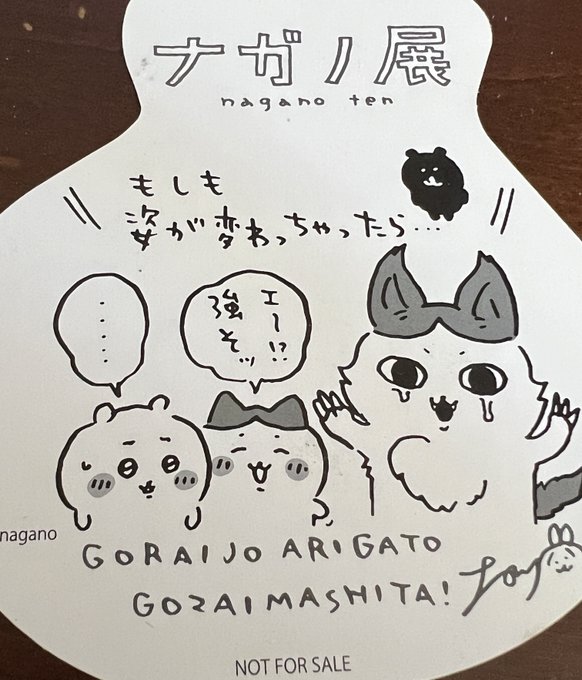 ナガノ展
nagano ten
もしも
姿が変わっちゃったら…
……
エー!?
強そッ
nagano
GORAIJO ARIGATO
GOZAIMASHITA!
NOT FOR SALE